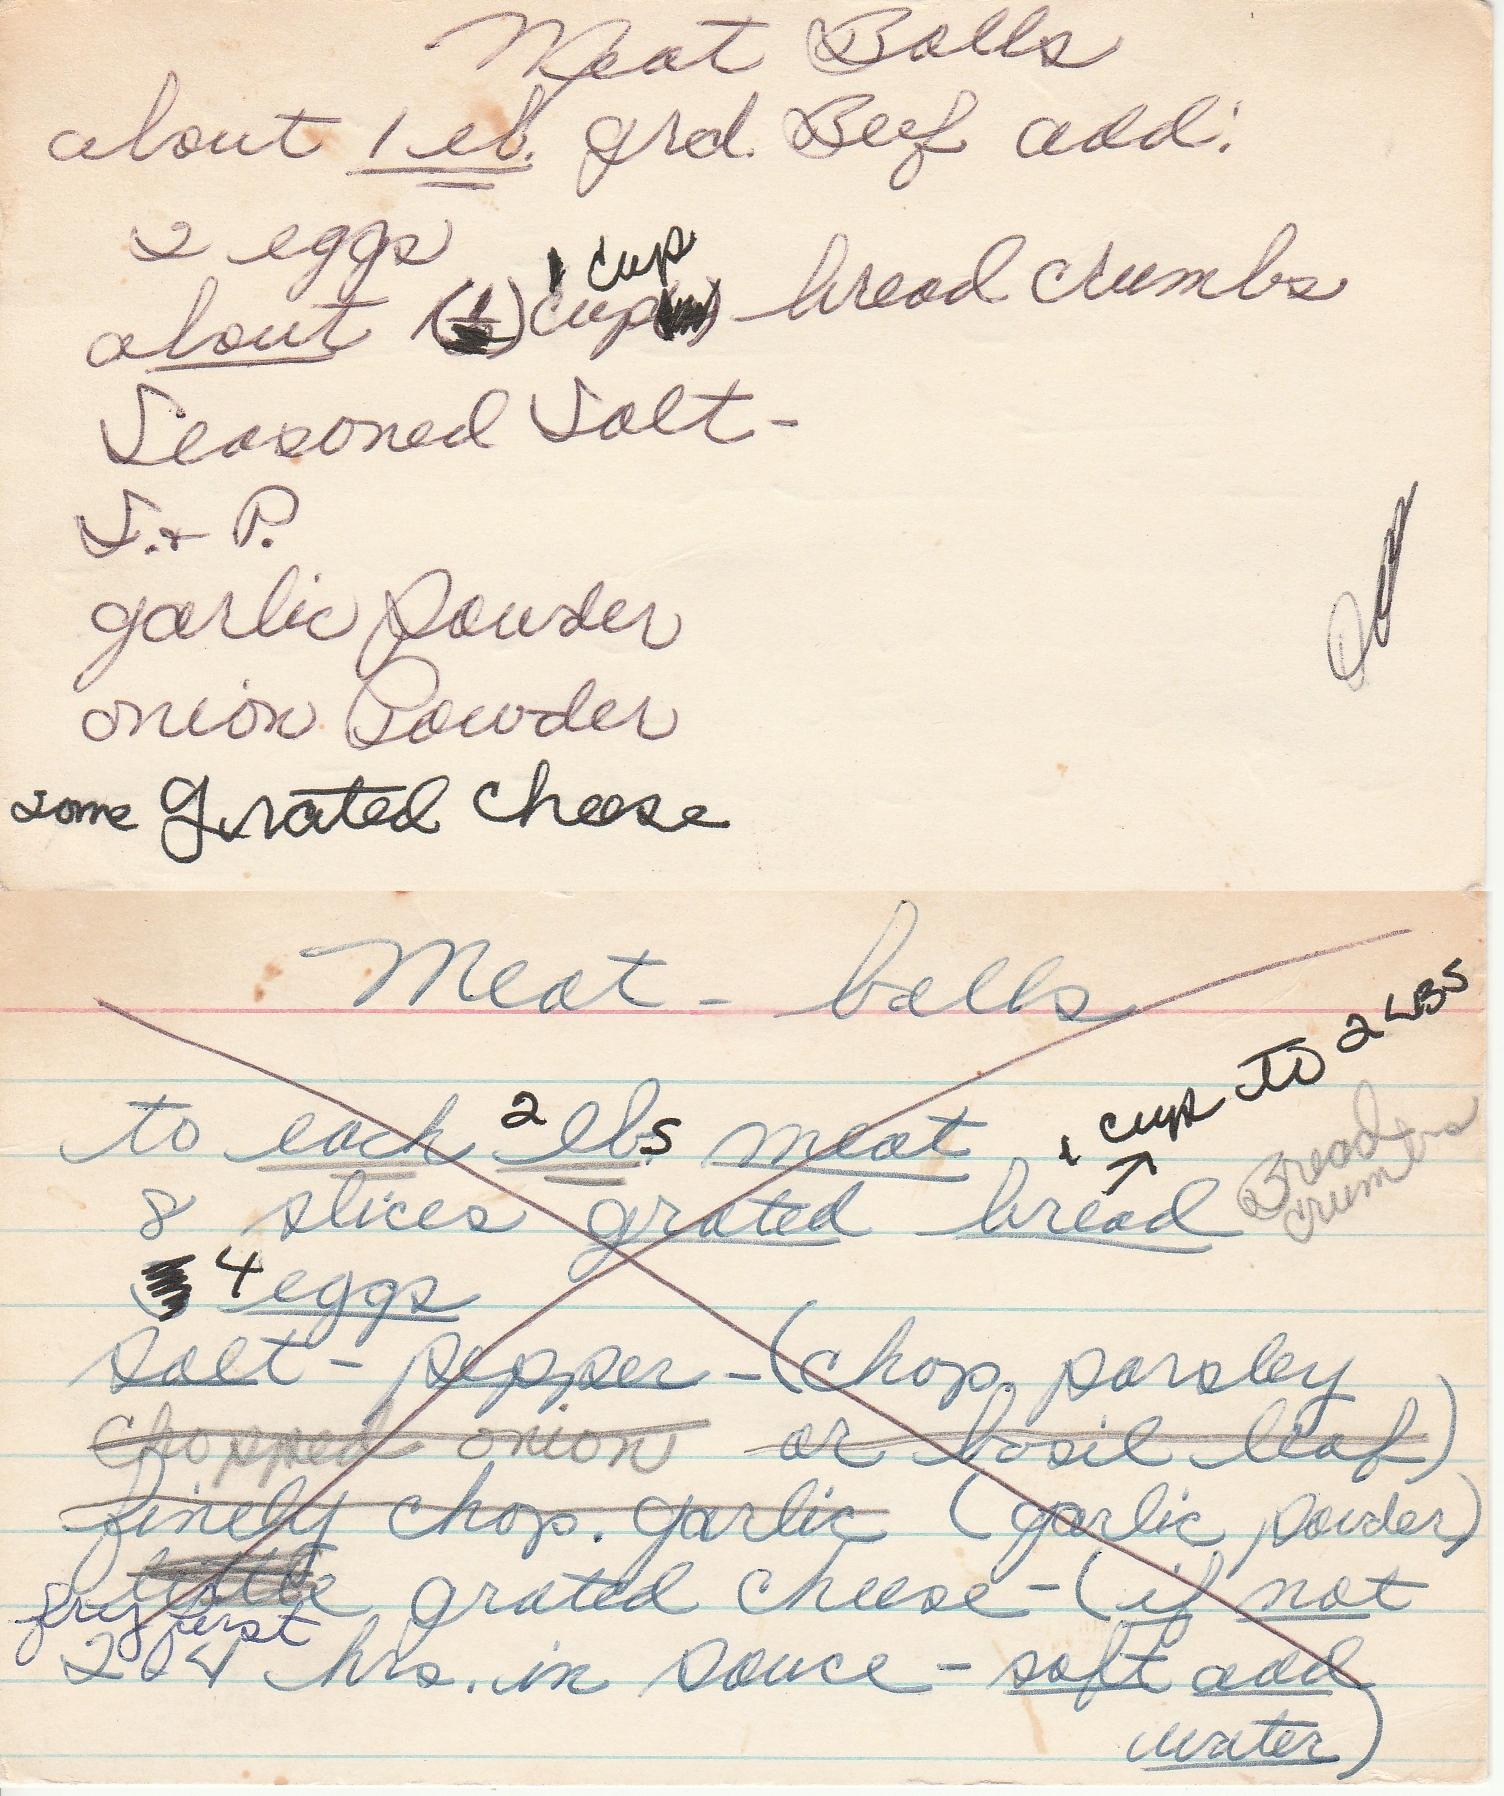 Meat Balls
about 1 lb. grd. Beef add:
2 eggs
1 cup
about 1 cup bread crumbs
Seasoned Salt -
S. & P.
garlic powder
onion Powder
some grated cheese
Meat - balls
to each 2 lbs meat
1 cup to 2 LBS
8 slices grated bread
Bread crumbs
4 eggs
salt - pepper - (chop. parsley
chopped onion or basil leaf)
finely chop. garlic (garlic powder)
little grated cheese - (if not
fry first
2 or 4 hrs. in sauce - soft add
water)